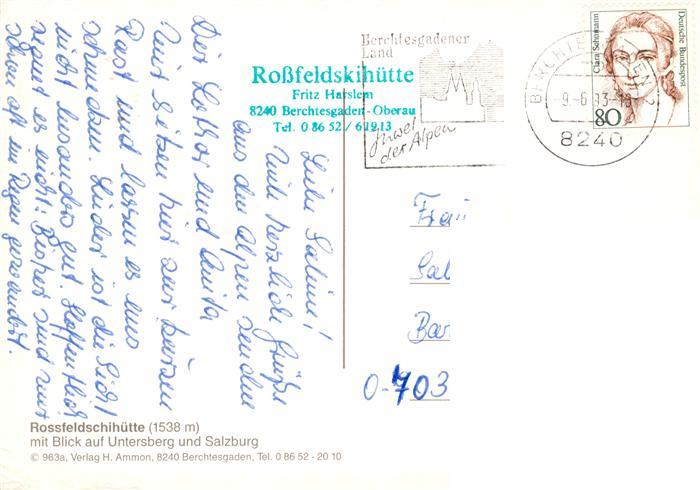 Liebe Sabine!
Viele herzliche Grüße
aus den Alpen senden
Dir Lothar und Anita
Wir sitzen hier zur kurzen
Rast und lassen es uns
schmecken. Leider ist die Sicht
nicht besonders gut. Hoffentlich
regnet es nicht. Bisher sind wir
schon oft im Regen gewandert.
Roßfeldskihütte
Fritz Harslem
8240 Berchtesgaden-Oberau
Tel. 0 86 52 /
Berchtesgadener
Land
Juwel
der Alpen
BERCHTESGADEN 2
8240
Clara Schumann
Deutsche Bundespost
80
Frau
Sab
Bar
O-703
Rossfeldschihütte (1538 m)
mit Blick auf Untersberg und Salzburg
© 963a, Verlag H. Ammon, 8240 Berchtesgaden, Tel. 0 86 52 - 20 10